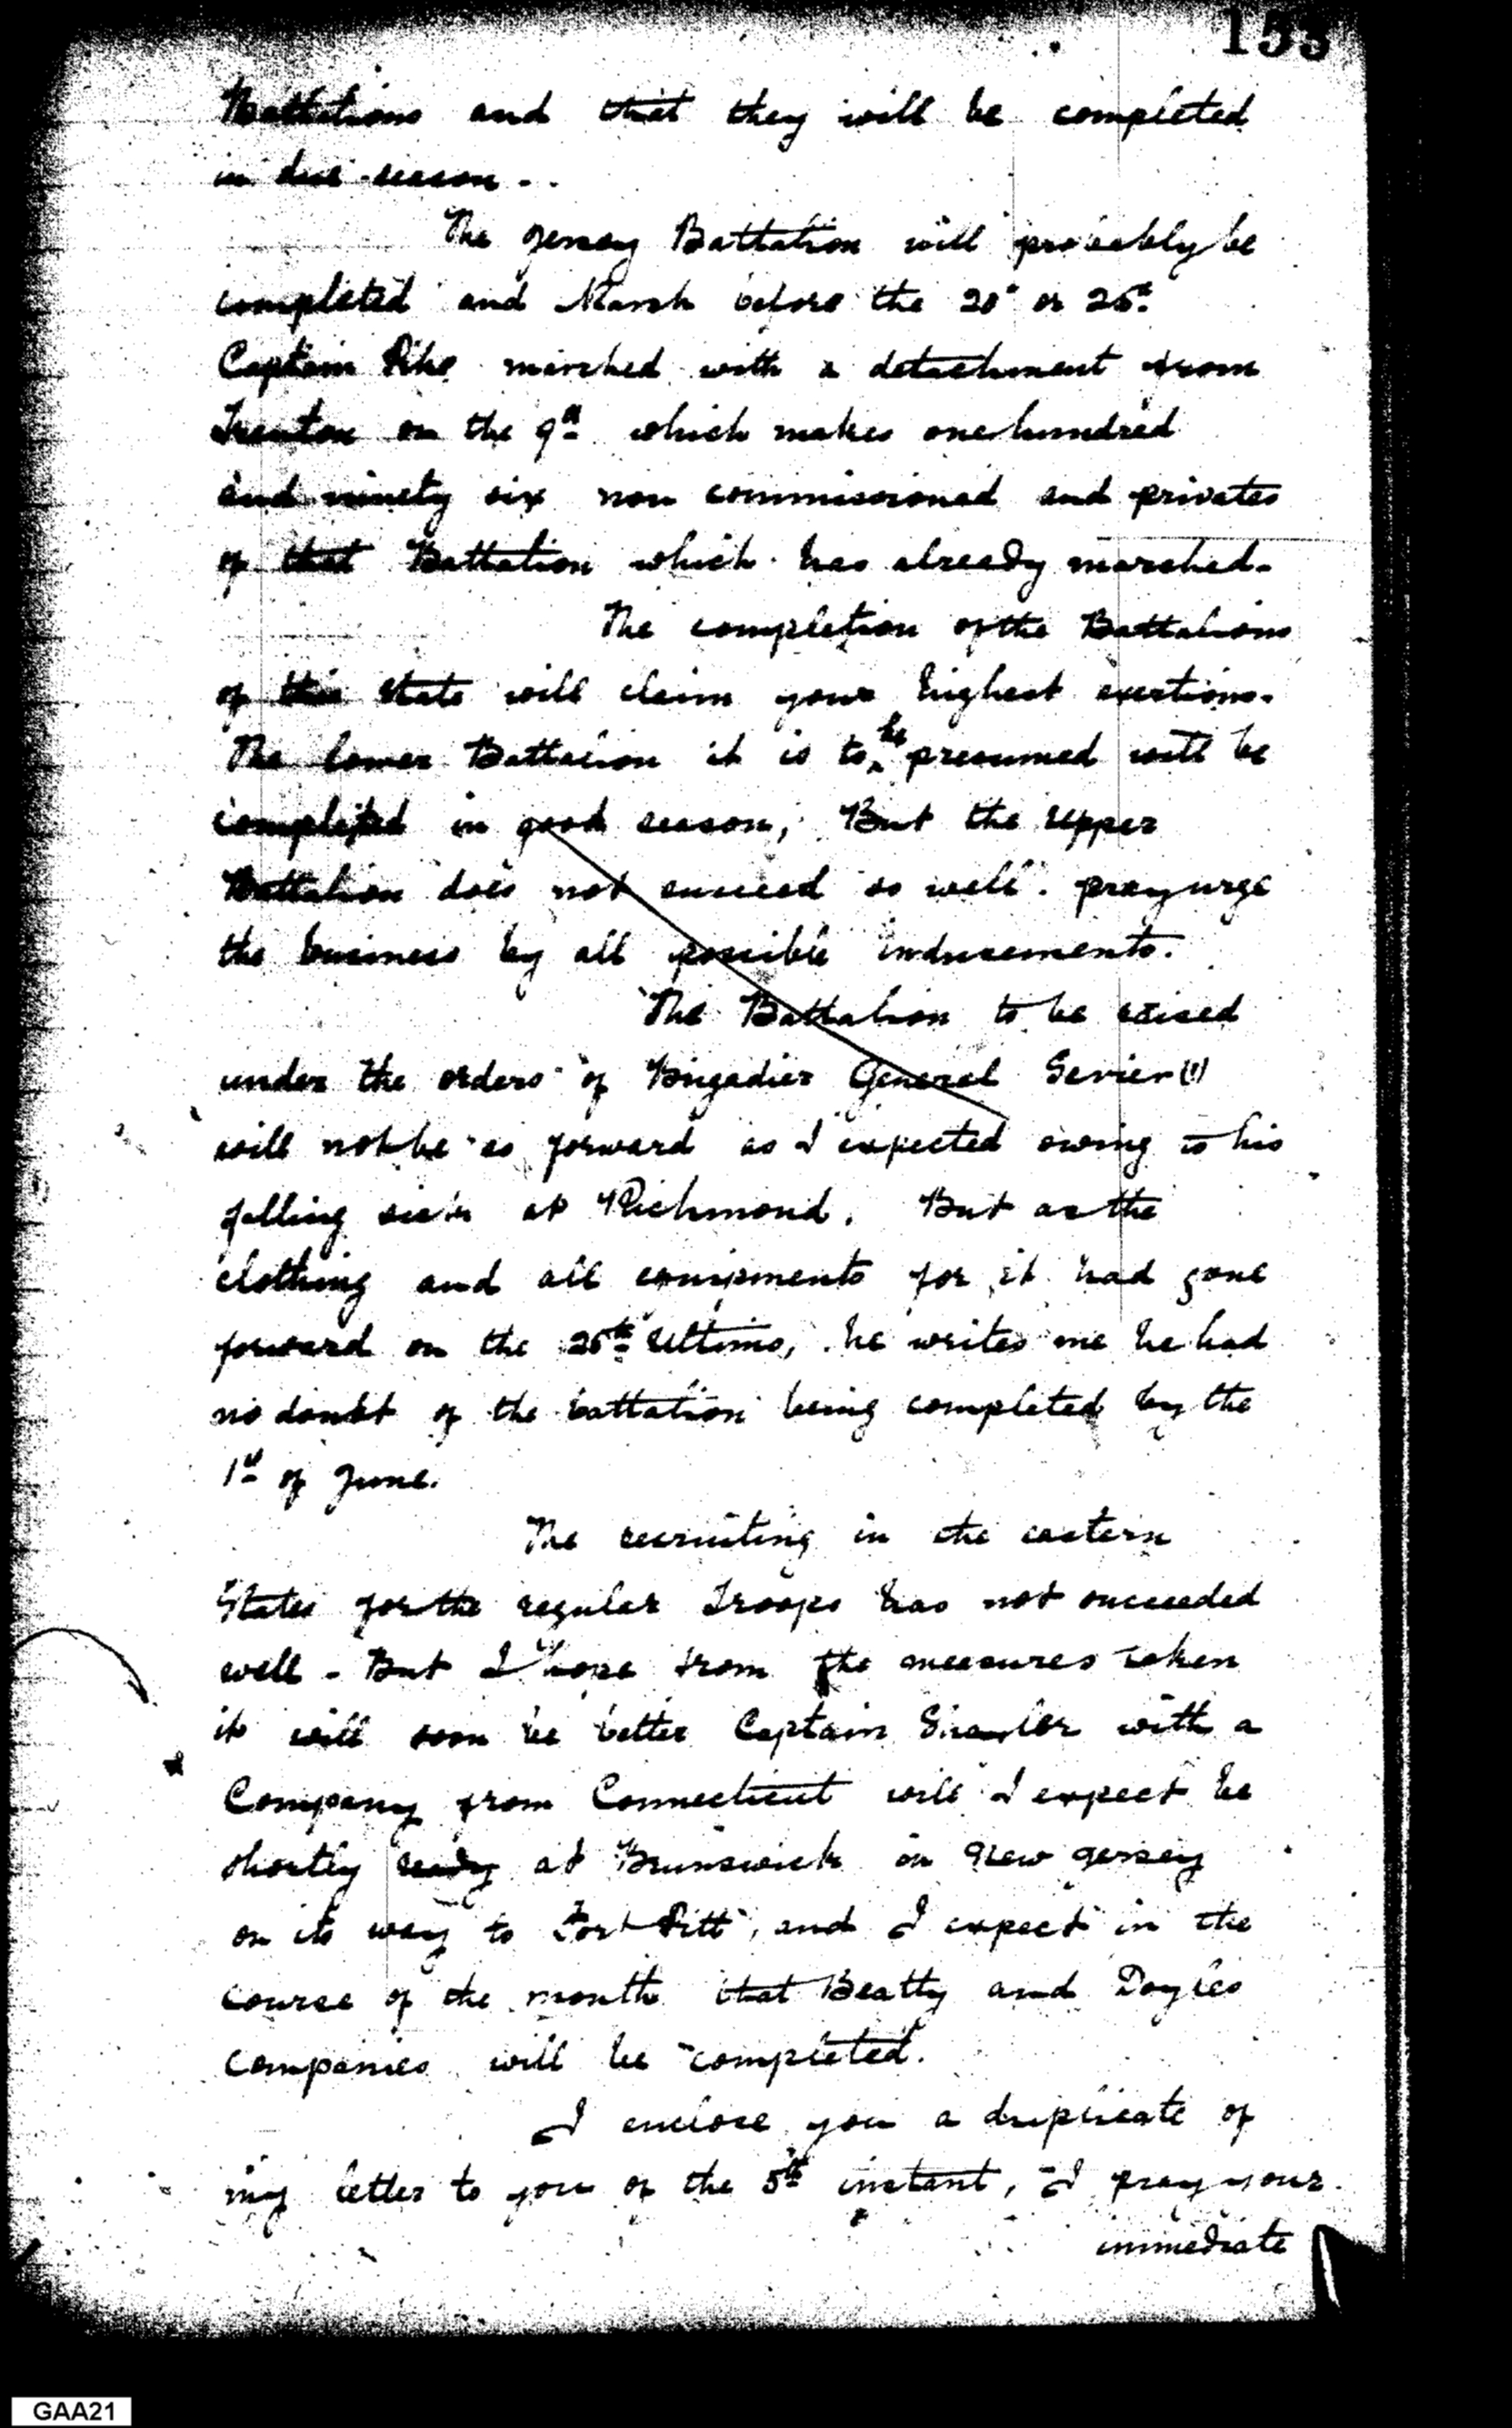 153
Battalions and that they will be completed
in due season..
The Jersey Battalion will probably be
completed and March before the 20th or 25th.
Captain Pike marched with a detachment from
Trenton on the 9th which makes one hundred
and ninety six non commissioned and privates
of that Battalion which has already marched.
The completion of the Battalions
of this State will claim your highest exertions.
The lower Battalion it is to be presumed will be
completed in good season, But the Upper
Battalion does not succeed so well. pray urge
the business by all possible inducements.
The Battalion to be raised
under the orders of Brigadier General Sevier (1)
will not be so forward as I expected owing to his
falling sick at Richmond. But as the
clothing and all equipments for it had gone
forward on the 25th Ultimo, he writes me he had
no doubt of the battalion being completed by the
1st of June.
The recruiting in the eastern
States for the regular Troops has not succeeded
well - But I hope from the measures taken
it will soon be better Captain with a
Company from Connecticut will I expect be
shortly ready at Brunswick in New Jersey
on its way to Fort Pitt, and I expect in the
course of the month that Beatty and Doyles
companies will be completed.
I enclose you a duplicate of
my letter to you of the 5th instant, I pray your
immediate
GAA21